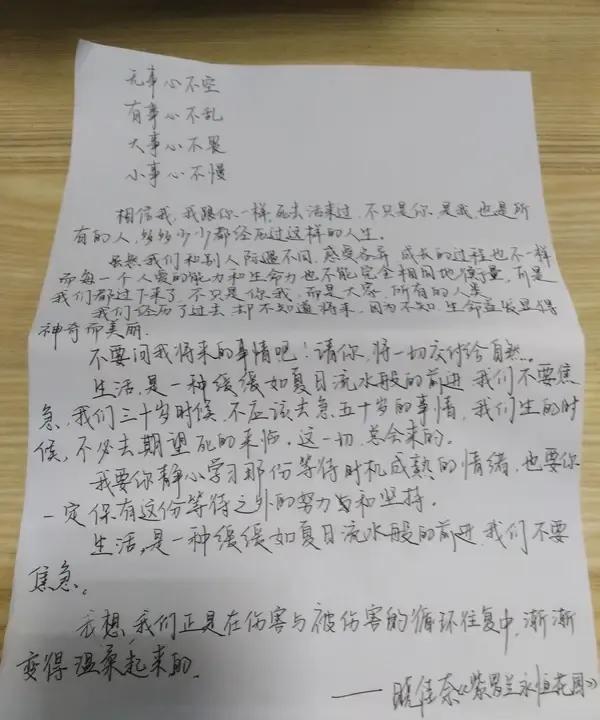 无事心不空
有事心不乱
大事心不畏
小事心不慢
相信我,我跟你一样,死去活来过,不只是你,是我,也是所
有的人,多多少少都经历过这样的人生。
虽然我们和别人际遇不同,感受各异,成长的过程也不一样
而每一个人爱的能力和生命力也不能完全相同地衡量,可是
我们都过下来了,不只是你我,而是大家,所有的人类。
我们经历了过去,却不知道将来,因为不知,生命益发显得
神奇而美丽.
不要问我将来的事情吧!请你,将一切交付给自然。
生活,是一种缓缓如夏日流水般的前进,我们不要焦
急,我们三十岁时候,不应该去急五十岁的事情,我们生的时
候,不必去期望死的来临,这一切,总会来的。
我要你静心学习那份等待时机成熟的情绪,也要你
一定保有这份等待之外的努力和坚持。
生活,是一种缓缓如夏日流水般的前进,我们不要
焦急。
我想,我们正是在伤害与被伤害的循环往复中,渐渐
变得温柔起来的.
——晓佳奈《紫罗兰永恒花园》